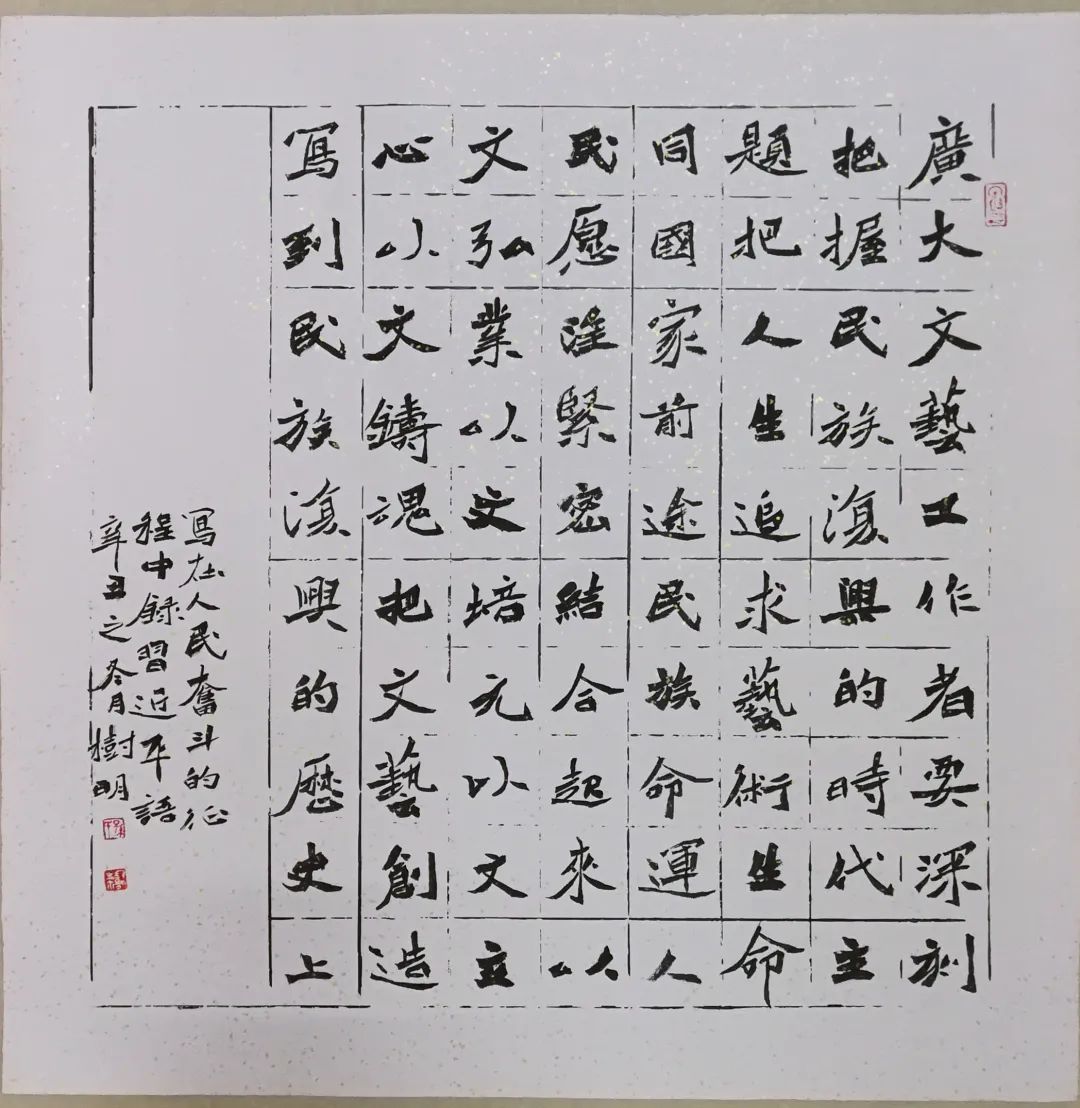 廣大文藝工作者要深刻
把握民族復興的時代主
題把人生追求藝術生命
同國家前途民族命運人
民愿望緊密結合起來以
文弘業以文培元以文立
心以文鑄魂把文藝創造
寫到民族復興的歷史上
寫在人民奮斗的征
程中録習近平語
辛丑之冬月樹明